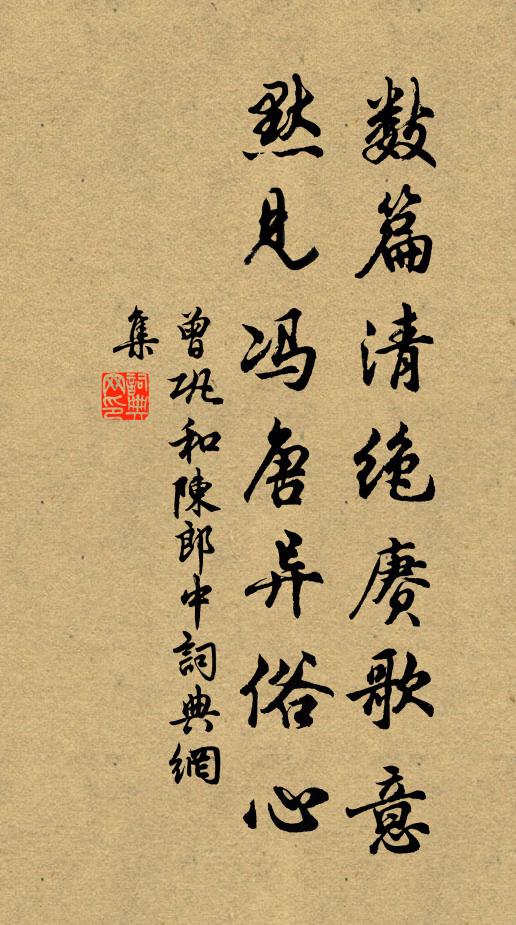 数篇清绝赓歌意
默见冯唐异俗心
曾巩和陳郎中詞典網
集
詞典網印